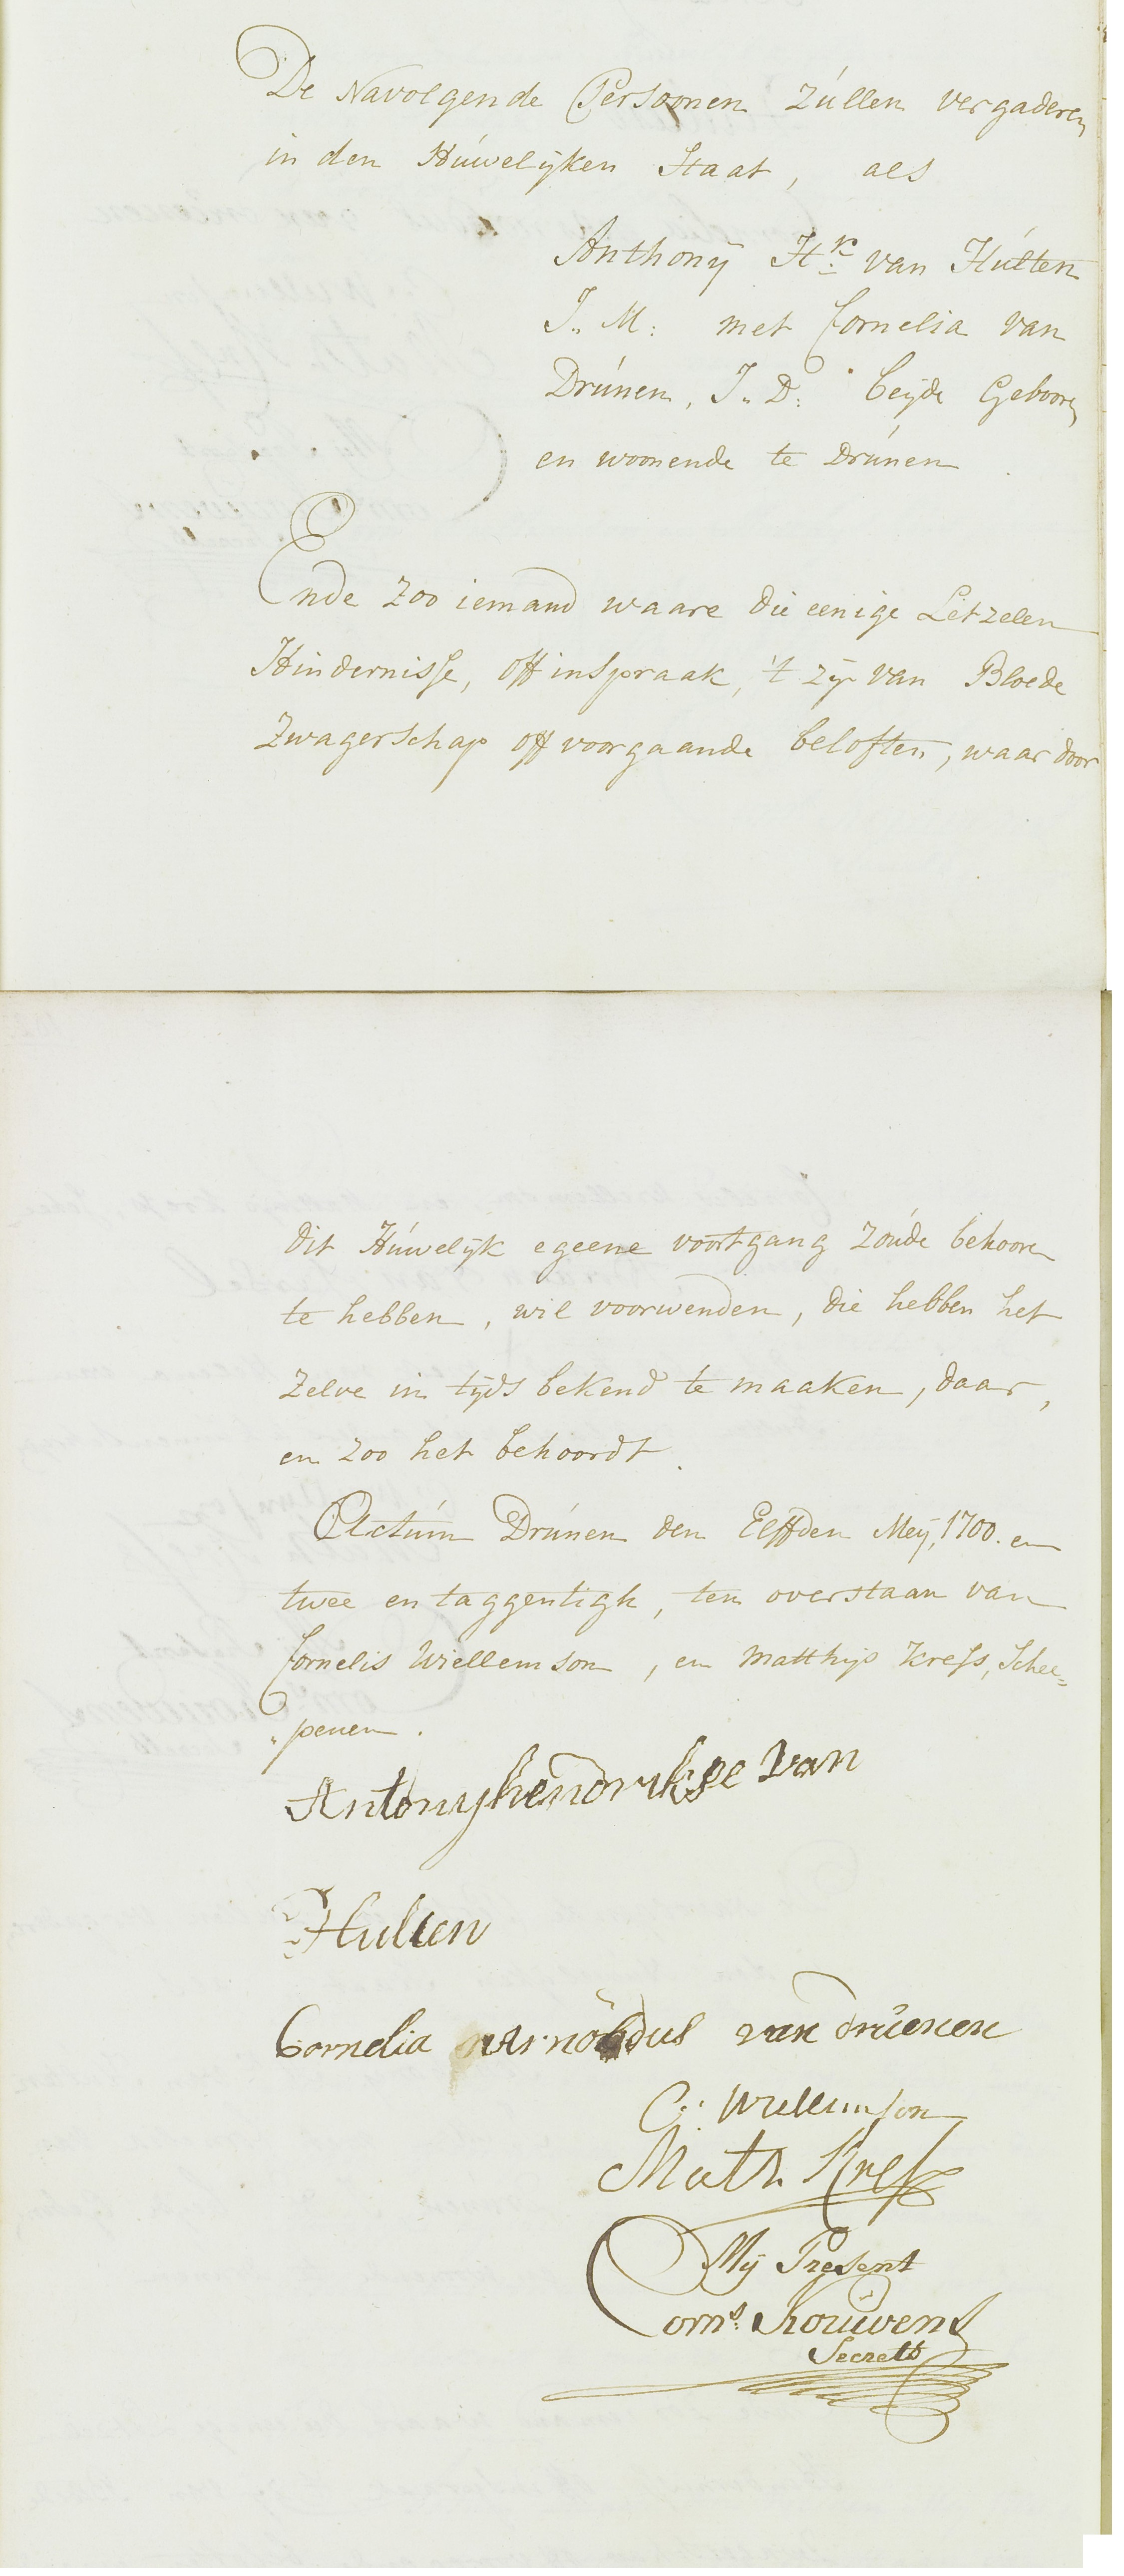 De Navolgende Persoonen Zúllen vergaderen
in den Húwelijken Staat, als
Anthonij Hr: van Húlten
J:. M: met Cornelia van
Drúnen, J:. D: beijde Gebooren
en woonende te Drúnen
Ende Zoo iemand waare die eenige Letzelen
Hindernisse, off inspraak, 't zij van Bloede
Zwagerschap off voorgaande beloften, waar door
dit Húwelijk egeene voortgang Zoúde behooren
te hebben, wil voorwenden, die hebben het
Zelve in tijds bekend te maaken, daar,
en Zoo het behoordt.
Actúm Drúnen den Elffden Meij, 1700. en
twee en taggentigh, ten overstaan van
Cornelis Wiellemson, en Matthijs Kress, Schee=
„penen.
Antonyhendrikse van
Hulten
Cornelia Arnoldus van drúenen
C:. Willemson
Math. Kress
Mij Present
Corns: Kouwens
Secrets